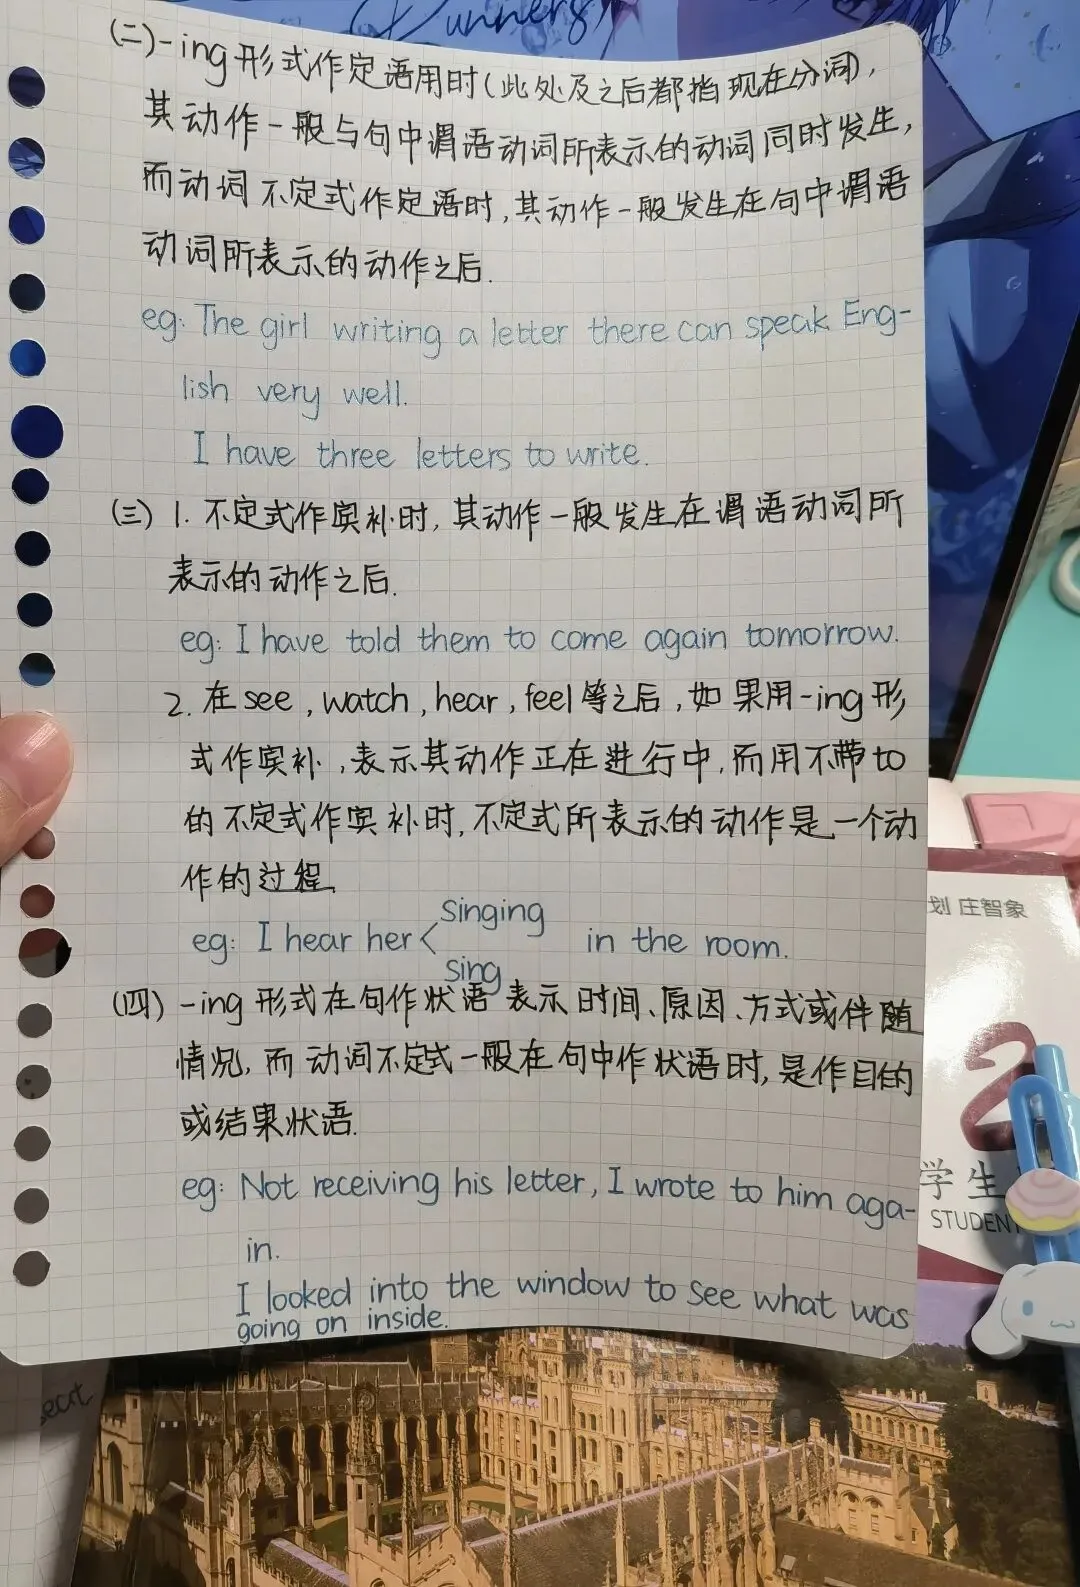 Runners
(二)-ing 形式作定语用时(此处及之后都指现在分词),
其动作一般与句中谓语动词所表示的动词同时发生,
而动词不定式作定语时,其动作一般发生在句中谓语
动词所表示的动作之后.
eg: The girl writing a letter there can speak Eng-
lish very well.
I have three letters to write.
(三) 1. 不定式作宾补时,其动作一般发生在谓语动词所
表示的动作之后.
eg: I have told them to come again tomorrow.
2. 在 see, watch, hear, feel 等之后,如果用-ing 形
式作宾补,表示其动作正在进行中,而用不带 to
的不定式作宾补时,不定式所表示的动作是一个动
作的过程.
singing
eg: I hear her< in the room.
sing
(四) -ing 形式在句作状语 表示 时间、原因、方式或伴随
情况,而动词不定式一般在句中作状语时,是作目的
或结果状语.
eg: Not receiving his letter, I wrote to him aga-
in.
I looked into the window to see what was
going on inside.
划 庄智象
2
学生
STUDEN